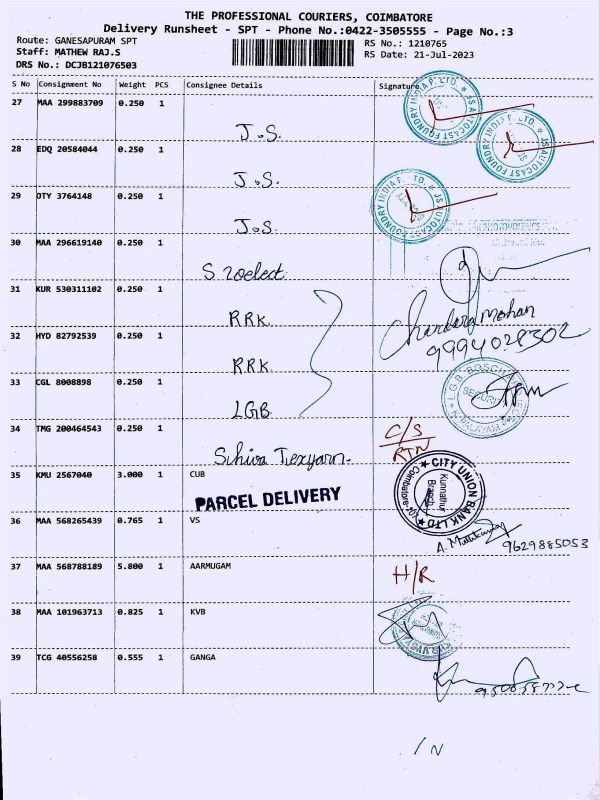 THE PROFESSIONAL COURIERS, COIMBATORE
Delivery Runsheet - SPT - Phone No.:0422-3505555 - Page No.:3
Route: GANESAPURAM SPT
Staff: MATHEW RAJ.S
DRS No.: DCJB121076503
RS No.: 1210765
RS Date: 21-Jul-2023
S No Consignment No Weight PCS Consignee Details Signature
27 MAA 299883709 0.250 1 J.S.
28 EDQ 20584044 0.250 1 J.S.
29 OTY 3764148 0.250 1 J.S.
30 MAA 296619140 0.250 1 S zoelect.
31 KUR 530311102 0.250 1 RRK
32 HYD 82792539 0.250 1 RRK
Chandara mohan
9994028302
33 CGL 8008898 0.250 1 LGB
34 TMG 200464543 0.250 1 C/S
RTN
35 KMU 2567040 3.000 1 CUB
PARCEL DELIVERY
CITY UNION BANK LTD
Kunnathur
Branch
Coimbatore
36 MAA 568265439 0.765 1 VS
9629885053
37 MAA 568788189 5.800 1 AARMUGAM H/R
38 MAA 101963713 0.825 1 KVB
39 TCG 40556258 0.555 1 GANGA
JS AUTOCAST FOUNDRY INDIA P. LTD.
JS AUTOCAST FOUNDRY INDIA P. LTD.
JS AUTOCAST FOUNDRY INDIA P. LTD.